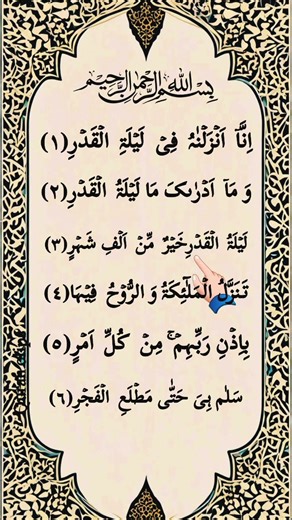 بسم الله الرحمن الرحيم
اِنَّاۤ اَنْزَلْنٰهُ فِیْ لَیْلَةِ الْقَدْرِ(۱)
وَ مَاۤ اَدْرٰىکَ مَا لَیْلَةُ الْقَدْرِ(۲)
لَیْلَةُ الْقَدْرِخَیْرٌ مِّنْ اَلْفِ شَهْرٍ(۳)
تَنَزَّلُ الْمَلٰٓىِٕکَةُ وَ الرُّوْحُ فِیْهَا(٤)
بِاِذْنِ رَبِّهِمْ ۚ مِنْ کُلِّ اَمْرٍ(۵)
سَلٰم هِیَ حَتّٰی مَطْلَعِ الْفَجْرِ(۶)